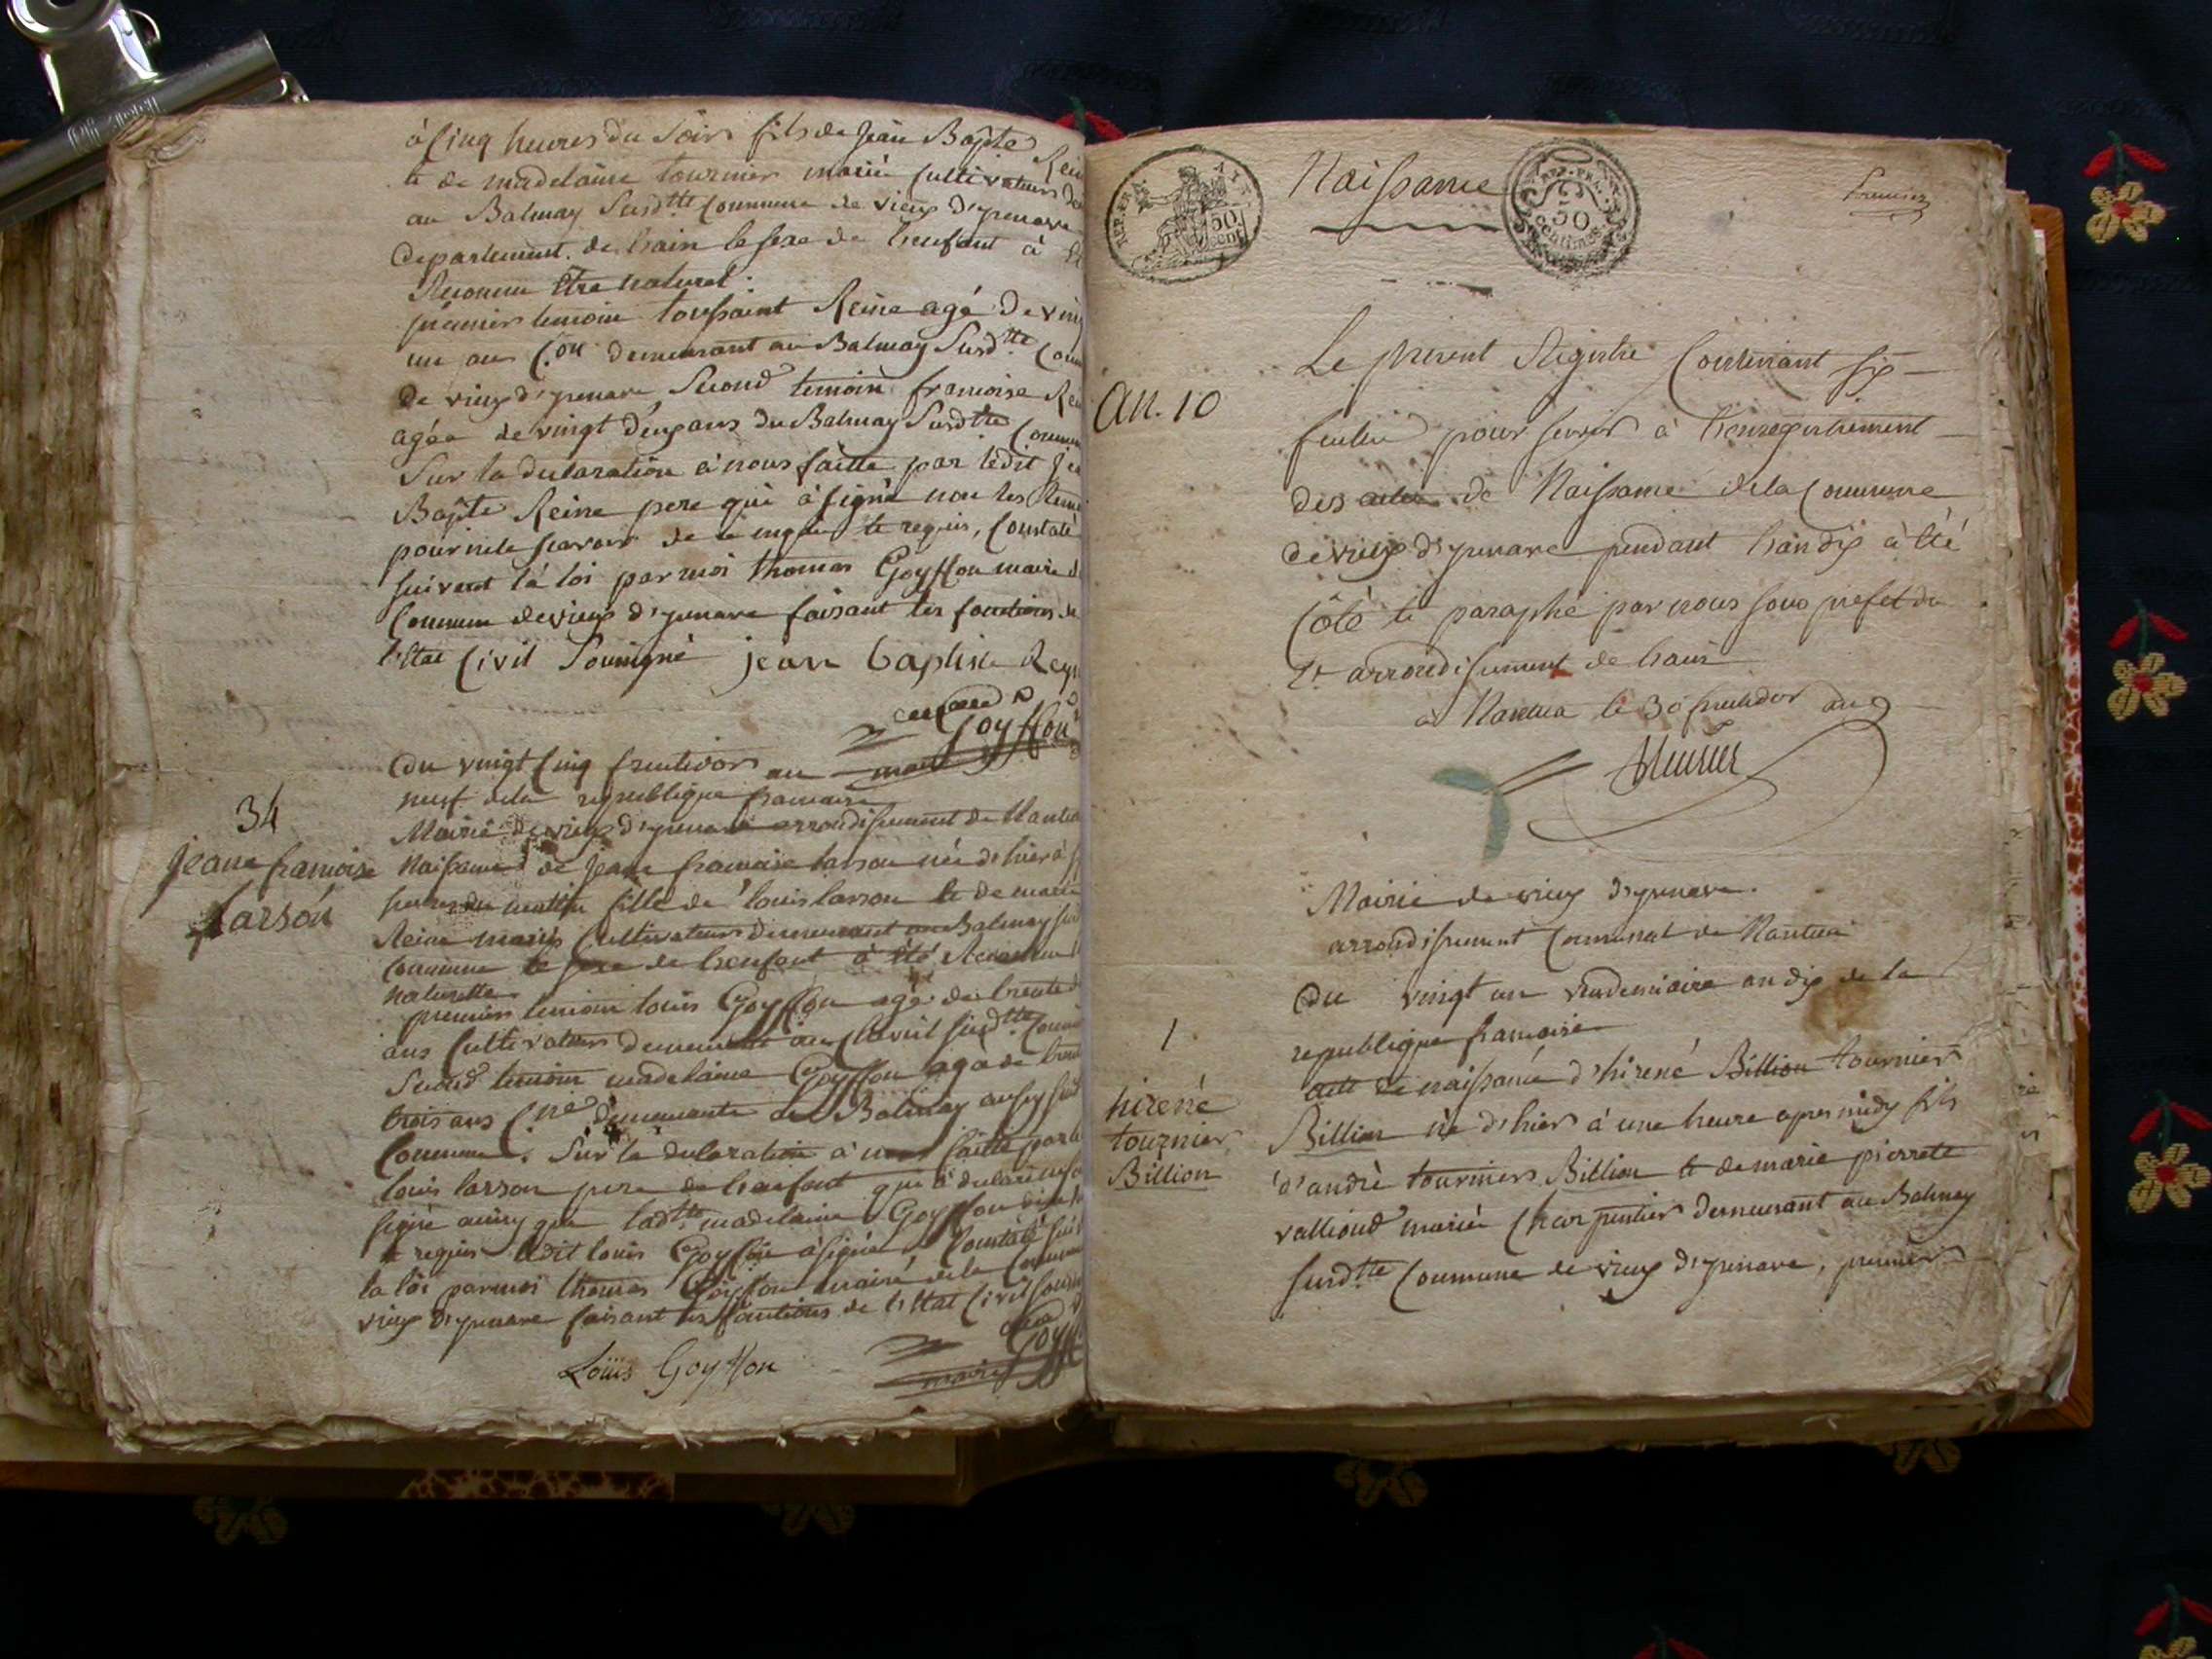 à Cinq heures du Soir fils de Jean Bapte
Rein
et de madelaine tournier mariés Cultivateurs de
au Balmay Susdtte Commune de vieux d'yzenave
departement de l'ain le sexe de l'enfant à
Reconnu être naturel.
premier temoin toussaint Reine agé de ving
un ans demeurant au Balmay Susdtte Com
de vieux d'yzenave Second temoin francoise Rei
agée de vingt deux ans du Balmay Susdtte Commu
Sur la declaration à nous faitte par ledit Je
Bapte Reine pere qui à signé non les temo
pour ne le scavoir de ce enquis et requis, Constaté
suivant la loi par moi thomas Goyffon maire de
Commune de vieux d'yzenave faisant les fonctions de
l'Etat Civil Soussigné jean baptiste Reyn
Goyffon
maire
Du vingt Cinq fructidor an
neuf de la republique francaise
Mairie de vieux d'yzenave arrondissement de Nantua
34
jeane francoise
Larson
Naissance de Jeane francoise larson née d'hier à
heures du mattin fille de louis larson et de marie
Reine mariés Cultivateurs demeurant au Balmay sus
Commune le sexe de l'enfant à été Reconnu
naturelle
premier temoin louis Goyffon agé de trente
ans Cultivateur demeurant au susdtte Commu
Second temoin madelaine Goyffon agée de trent
trois ans demeurante au Balmay aussy sus
Commune. Sur la declaration à nous faitte par le
louis larson pere de l'enfant qui à declaré
signé ainsy que ladtte madelaine Goyffon
et requis ledit louis Goyffon à signé Constaté sui
la loi par moi thomas Goyffon maire de la Commune
vieux d'yzenave faisant les fonctions de l'Etat Civil sous
Louis Goyffon
Goyff
maire
REP. FRA.
50
cent
Naissance
REP. FRA.
50
centimes
premier
An. 10
Le present Registre Contenant six
feuillets pour servir à l'enregistrement
des actes de Naissance de la Commune
de vieux d'yzenave pendant l'an dix à été
Côté et paraphé par nous sous prefet du
2e arrondissement de l'ain
à Nantua le 30 fructidor an 9
Mairie de vieux d'yzenave.
arrondissement Communal de Nantua
Du vingt un vendemiaire an dix de la
republique francaise
1
hirené
tournier
Billion
acte de naissance d'hirené Billion tournier
Billion né d'hier à une heure apres midy fils
d'andrè tournier Billion et de marie pierrette
vallioud mariés Charpentier demeurant au Balmay
susdtte Commune de vieux d'yzenave, premier